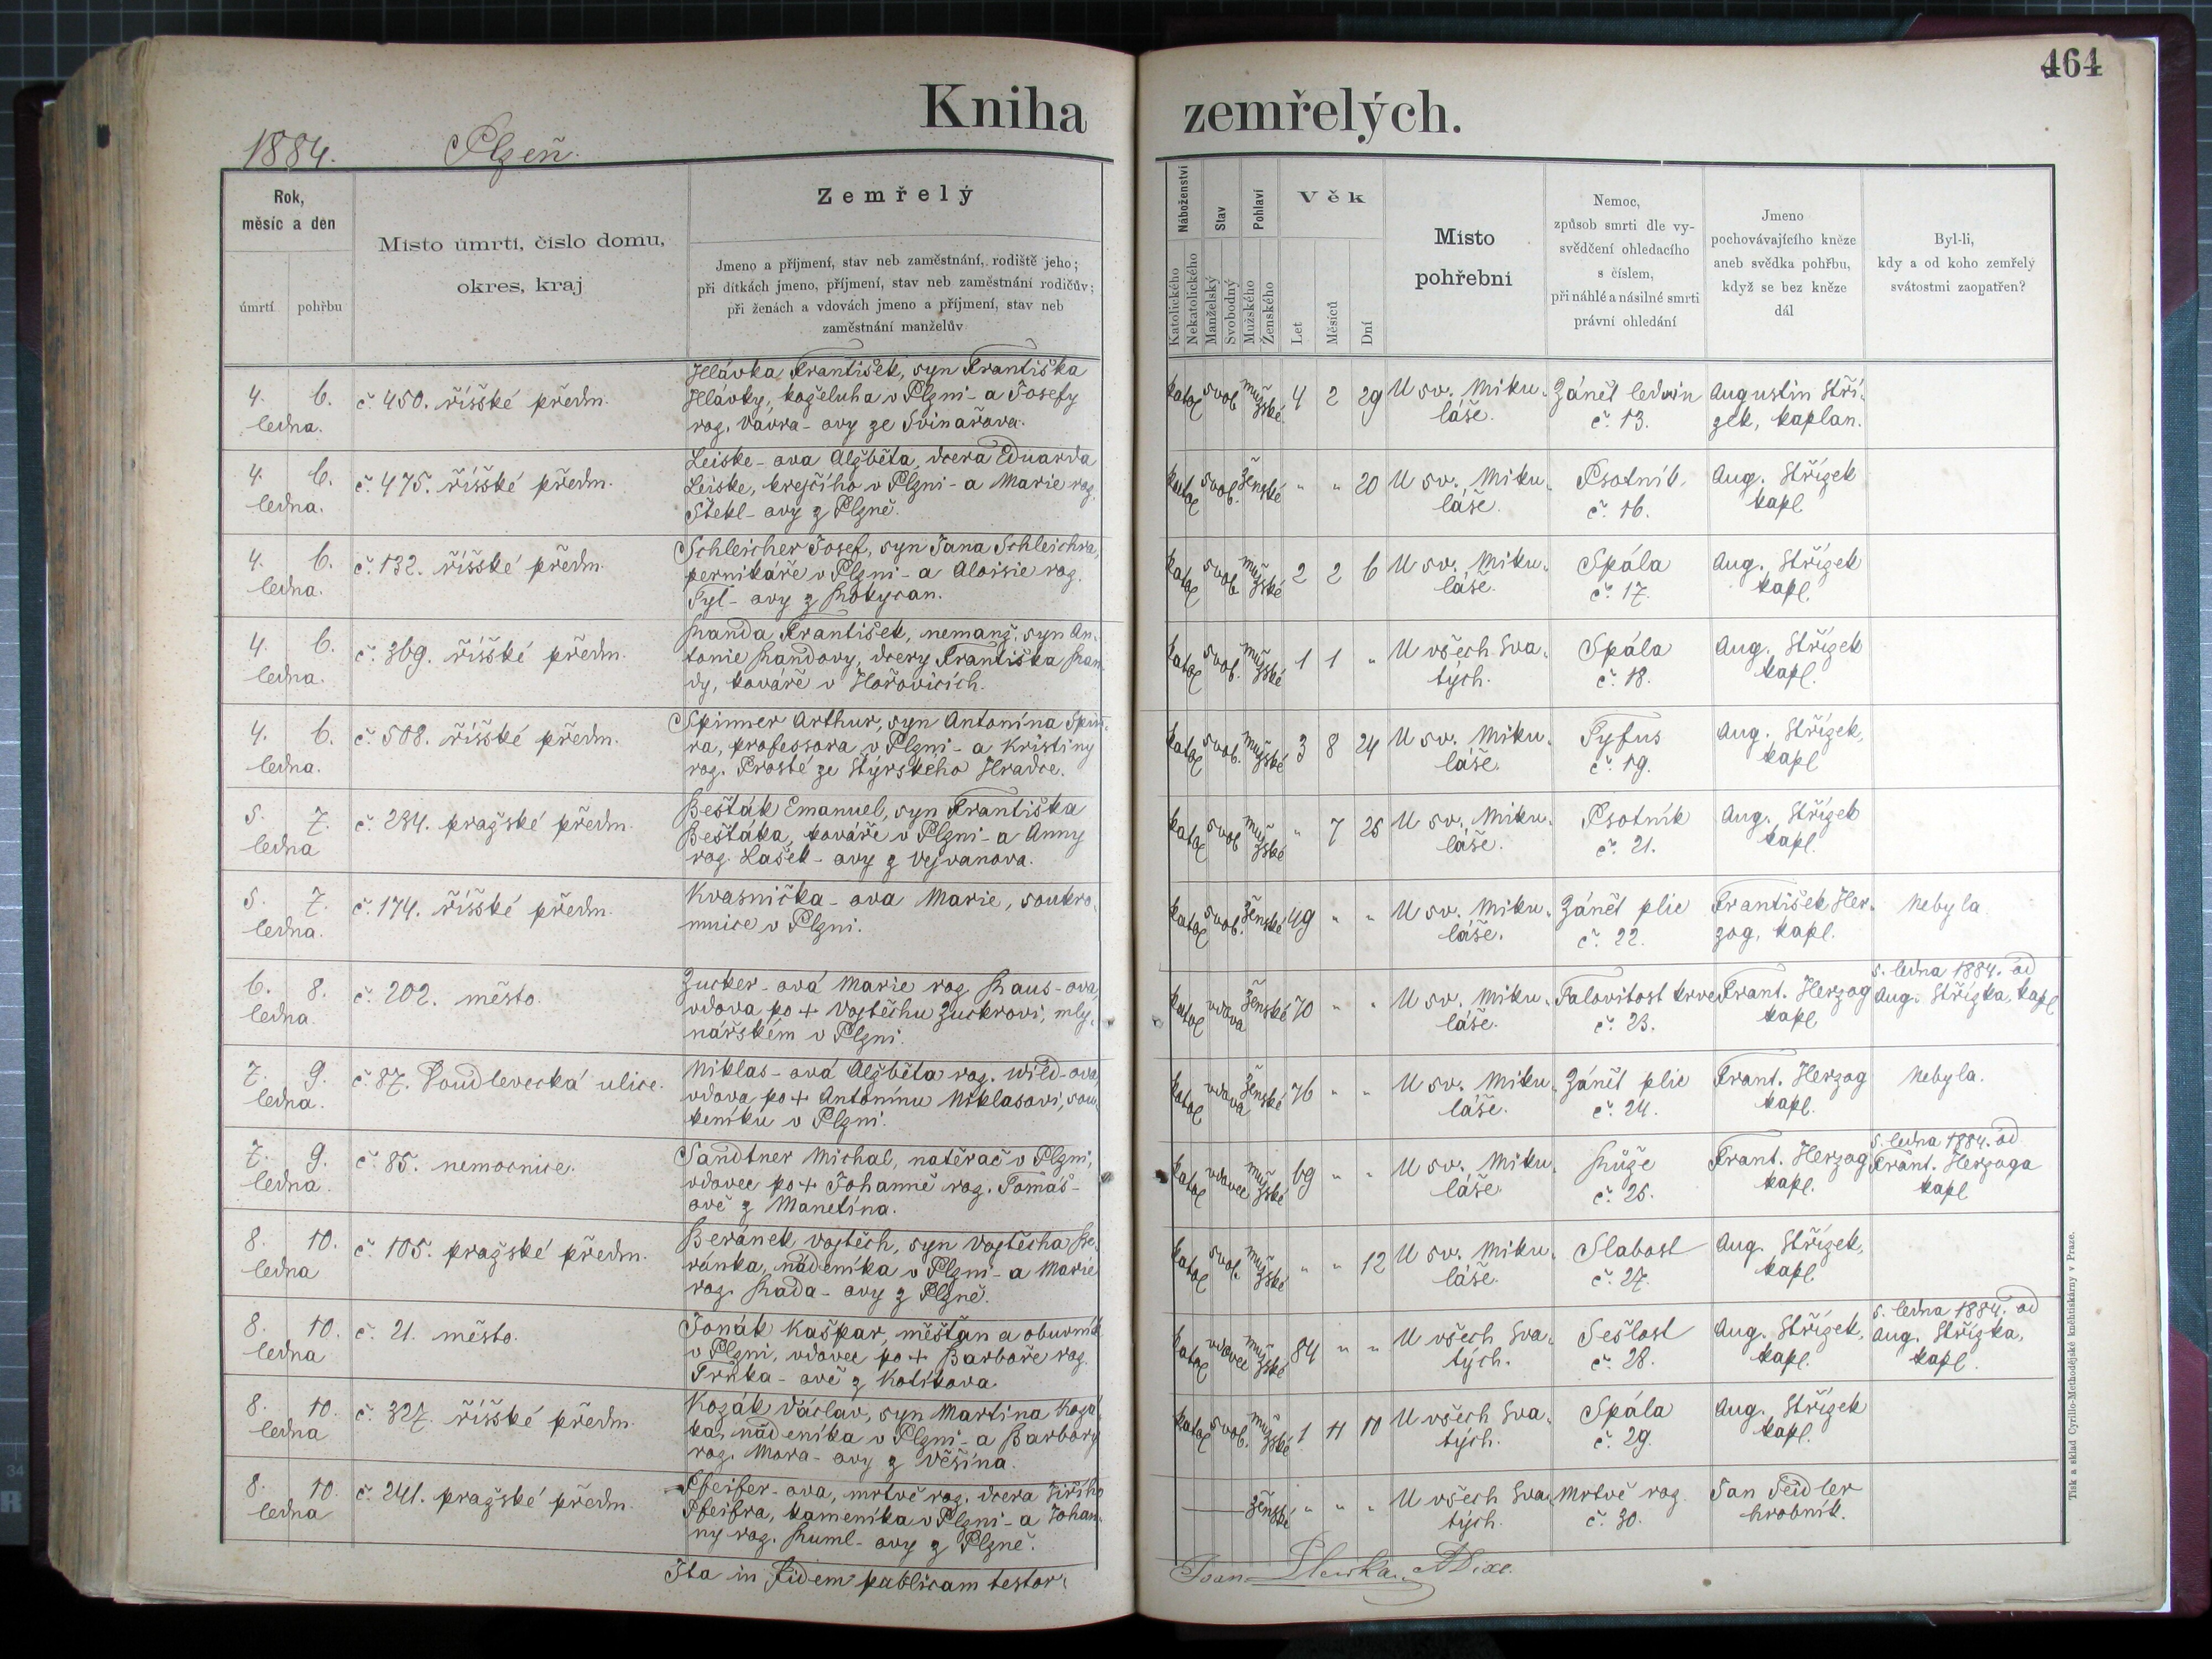 464
Kniha zemřelých.
1884. Plzeň.
Rok,
měsíc a den
úmrtí pohřbu
Místo úmrtí, číslo domu,
okres, kraj
Zemřelý
Jmeno a příjmení, stav neb zaměstnání, rodiště jeho;
při dítkách jmeno, příjmení, stav neb zaměstnání rodičův;
při ženách a vdovách jmeno a příjmení, stav neb
zaměstnání manželův
Náboženství
Katolického
Nekatolického
Stav
Manželský
Svobodný
Pohlaví
Mužského
Ženského
Věk
Let
Měsíců
Dní
Místo
pohřební
Nemoc,
způsob smrti dle vy-
svědčení ohledacího
s číslem,
při náhlé a násilné smrti
právní ohledání
Jmeno
pochovávajícího kněze
aneb svědka pohřbu,
když se bez kněze
dál
Byl-li,
kdy a od koho zemřelý
svátostmi zaopatřen?
4. 6.
ledna.
č. 450. říšské předm.
Hlávka František, syn Františka
Hlávky, koželuha v Plzni - a Josefy
roz. Vavra - ovy ze Svinařova.
katol svob mužské 4 2 29
U sv. Miku-
láše.
Zánět ledvin
č. 13.
Augustin Stří-
zek, kaplan.
4. 6.
ledna.
č. 475. říšské předm.
Leiske - ova Alžběta, dcera Eduarda
Leiske, krejčího v Plzni - a Marie roz.
Štekl - ovy z Plzně.
katol svob. ženské " " 20
U sv. Miku-
láše.
Psotník.
č. 16.
Aug. Střízek
kapl.
4. 6.
ledna.
č. 132. říšské předm.
Schleicher Josef, syn Jana Schleichra,
perníkáře v Plzni - a Aloisie roz.
Tyl - ovy z Rokycan.
katol svob mužské 2 2 6
U sv. Miku-
láše.
Spála
č. 17.
Aug. Střízek
kapl.
4. 6.
ledna.
č. 369. říšské předm.
Randa František, nemanž. syn An-
tonie Randovy, dcery Františka Ran-
dy, kováře v Hořovicích.
katol svob. mužské 1 1 "
U všech Sva-
tých.
Spála
č. 18.
Aug. Střízek
kapl.
4. 6.
ledna.
č. 508. říšské předm.
Spinner Arthur, syn Antonína Spin-
ra, professora v Plzni - a Kristiny
roz. Prosté ze Štýrského Hradce.
katol svob. mužské 3 8 24
U sv. Miku-
láše.
Tyfus
č. 19.
Aug. Střízek,
kapl
5. 7.
ledna
č. 234. pražské předm.
Bešťák Emanuel, syn Františka
Bešťáka, kováře v Plzni - a Anny
roz. Lašek - ovy z Vejvanova.
katol svob mužské " 7 25
U sv. Miku-
láše.
Psotník
č. 21.
Aug. Střízek
kapl.
5. 7.
ledna.
č. 174. říšské předm.
Kvasnička - ova Marie, soukro-
mnice v Plzni.
katol svob. ženské 49 " "
U sv. Miku-
láše.
Zánět plic
č. 22.
František Her-
zog, kapl.
Nebyla
6. 8.
ledna.
č. 202. město.
Zucker - ová Marie roz. Raus - ova,
vdova po + Vojtěchu Zuckrovi, mly-
nářském v Plzni.
katol vdova ženské 70 " "
U sv. Miku-
láše.
Jalovitost krve
č. 23.
Frant. Herzog
kapl.
5. ledna 1884. od
Aug. Střízka, kapl
7. 9.
ledna.
č. 87. Doudlevecká ulice.
Niklas - ová Alžběta roz. Wild - ova,
vdova po + Antonínu Niklasovi, sou-
keníku v Plzni.
katol vdova ženské 76 " "
U sv. Miku-
láše.
Zánět plic
č. 24.
Frant. Herzog
kapl.
Nebyla.
7. 9.
ledna.
č. 85. nemocnice.
Sandtner Michal, natěrač v Plzni,
vdovec po + Johanně roz. Tomáš -
ově z Manetína.
katol vdovec mužské 69 " "
U sv. Miku-
láše.
Růže
č. 25.
Frant. Herzog
kapl.
5. ledna 1884. od
Frant. Herzoga
kapl
8. 10.
ledna
č. 105. pražské předm.
Beránek Vojtěch, syn Vojtěcha Be-
ránka, nádeníka v Plzni - a Marie
roz. Rada - ovy z Plzně.
katol svob. mužské " " 12
U sv. Miku-
láše.
Slabost
č. 27.
Aug. Střízek,
kapl.
8. 10.
ledna
č. 21. město.
Jonák Kašpar, měšťan a obuvník
v Plzni, vdovec po + Barboře roz.
Trnka - ově z Kotíkova.
katol vdovec mužské 84 " "
U všech Sva-
tých.
Sešlost
č. 28.
Aug. Střízek,
kapl.
5. ledna 1884. od
Aug. Střízka,
kapl.
8. 10.
ledna
č. 327. říšské předm.
Kozák Václav, syn Martina Kozá-
ka, nádeníka v Plzni - a Barbory
roz. Mora - ovy z Věšína.
katol svob. mužské 1 11 10
U všech Sva-
tých.
Spála
č. 29.
Aug. Střízek
kapl.
8. 10.
ledna
č. 241. pražské předm.
Pfeifer - ova, mrtvě roz. dcera Jiřího
Pfeifra, kameníka v Plzni - a Johan-
ny roz. Ruml - ovy z Plzně.
ženské " " "
U všech Sva-
tých.
Mrtvě roz.
č. 30.
Jan Feidler
hrobník.
Ita in fidem publicam testor:
Tisk a sklad Cyrillo-Methodějské knihtiskárny v Praze.